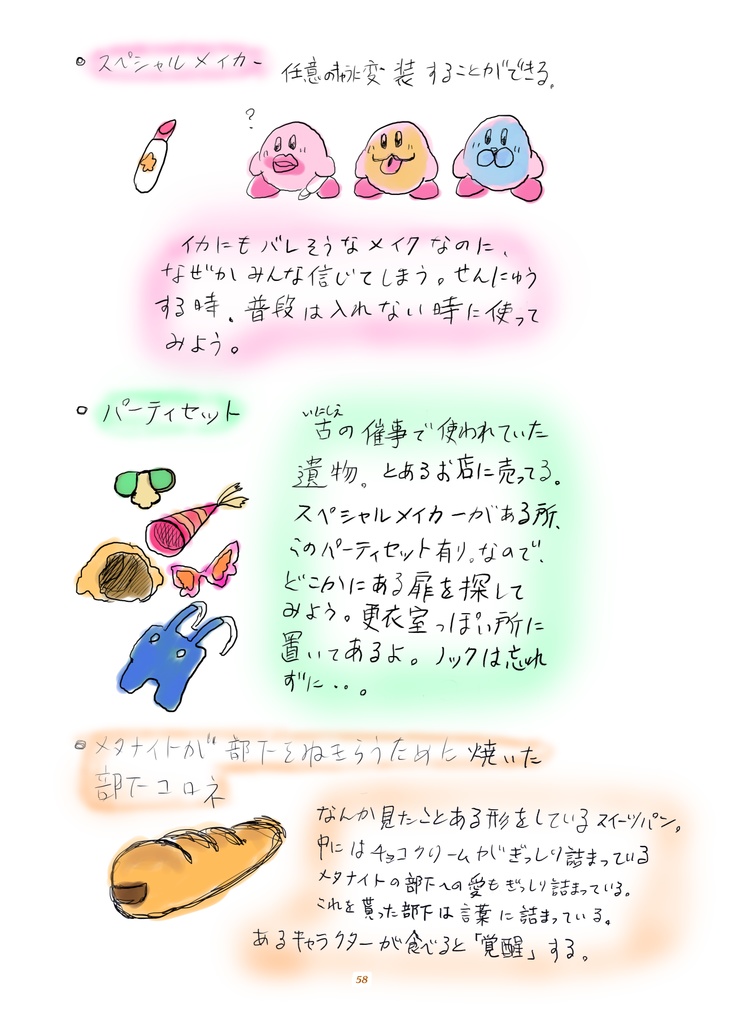 スペシャルメイカー
任意のキャラに変装することができる。
?
イカにもバレそうなメイクなのに、
なぜかみんな信じてしまう。せんにゅう
する時、普段は入れない時に使って
みよう。
パーティセット
いにしえ
古の催事で使われていた
遺物。とあるお店に売ってる。
スペシャルメイカーがある所、
このパーティセット有り。なので、
どこかにある扉を探して
みよう。更衣室っぽい所に
置いてあるよ。ノックは忘れ
ずに・・。
メタナイトが部下をねぎらうために焼いた
部下コロネ
なんか見たことある形をしているスイーツパン。
中にはチョコクリームがぎっしり詰まっている
メタナイトの部下への愛もぎっしり詰まっている。
これを貰った部下は言葉に詰まっている。
あるキャラクターが食べると「覚醒」する。
58